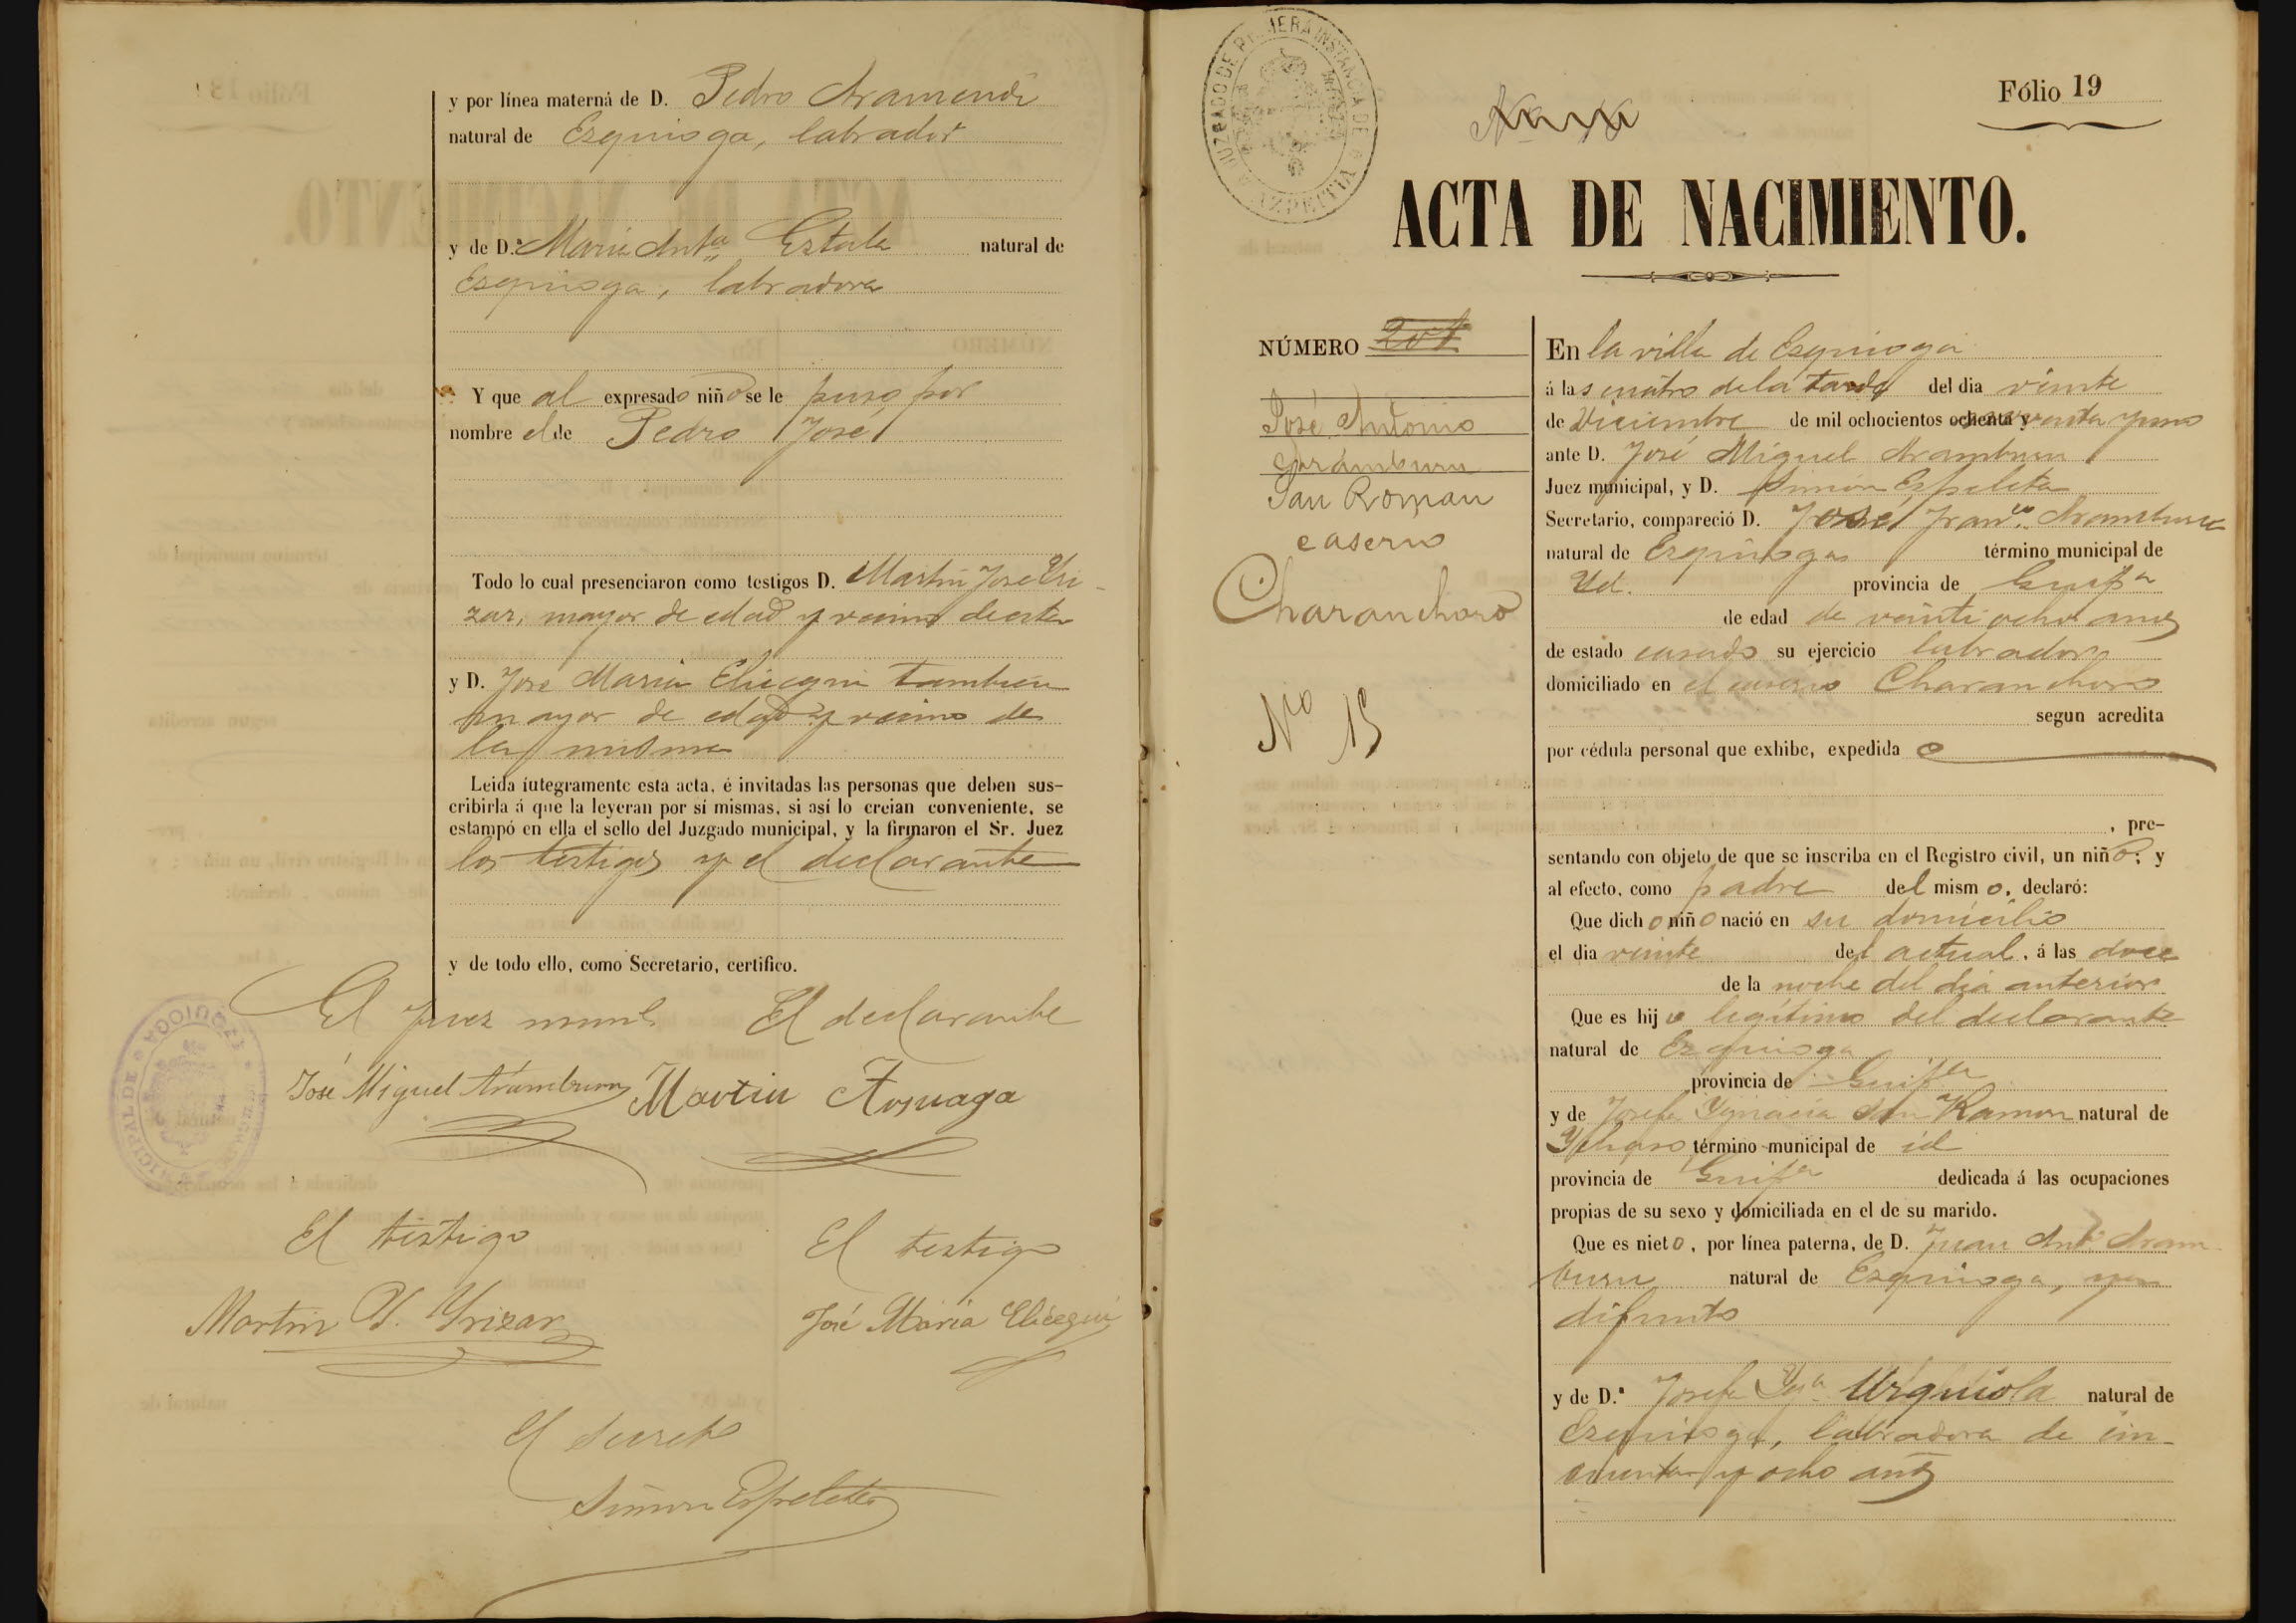 y por línea materna de D. Pedro Aramendi
natural de Ezquioga, labrador
y de D.ª Maria Ant.ª Estala natural de
Ezquioga, labradora
Y que al expresado niño se le puso por
nombre el de Pedro José
Todo lo cual presenciaron como testigos D. Martin José Yri-
zar, mayor de edad y vecino de esta
y D. José Maria Elicegui tambien
mayor de edad y vecino de
la misma
Leida íntegramente esta acta, é invitadas las personas que deben sus-
cribirla á que la leyeran por sí mismas, si así lo creian conveniente, se
estampó en ella el sello del Juzgado municipal, y la firmaron el Sr. Juez
los testigos y el declarante
y de todo ello, como Secretario, certifico.
El Juez munl. El declarante
José Miguel Aramburu Martin Asuaga
El testigo El testigo
Martin J. Yrizar José Maria Elicegui
El Secreto
Simon Espeleta
JUZGADO DE PRIMERA INSTANCIA DE AZPEITIA
Fólio 19
ACTA DE NACIMIENTO.
NÚMERO 201
José Antonio
Aramburu
San Roman
caserio
Charanchoro
Nº 19
En la villa de Ezquioga
á las cuatro de la tarde del dia veinte
de Diciembre de mil ochocientos ochenta y noventa y uno
ante D. José Miguel Aramburu
Juez municipal, y D. Simon Espeleta
Secretario, compareció D. José Franco. Aramburu
natural de Ezquioga término municipal de
Yd. provincia de Guipa
de edad de veinti ocho anos
de estado casado su ejercicio labrador
domiciliado en el caserio Charanchoro
segun acredita
por cédula personal que exhibe, expedida
, pre-
sentando con objeto de que se inscriba en el Registro civil, un niño; y
al efecto, como padre del mismo, declaró:
Que dicho niño nació en su domicilio
el dia veinte del actual, á las doce
de la noche del dia anterior
Que es hijo legítimo del declarante
natural de Ezquioga
provincia de Guipa
y de Josefa Ygnacia San Ramon natural de
Ychaso término municipal de id
provincia de Guipa dedicada á las ocupaciones
propias de su sexo y domiciliada en el de su marido.
Que es nieto, por línea paterna, de D. Juan Ant.º Aram
buru natural de Ezquioga, ya
difunto
y de D.ª Josefa Ygª Urquiola natural de
Ezquioga, labradora de cin-
cuenta y ocho años